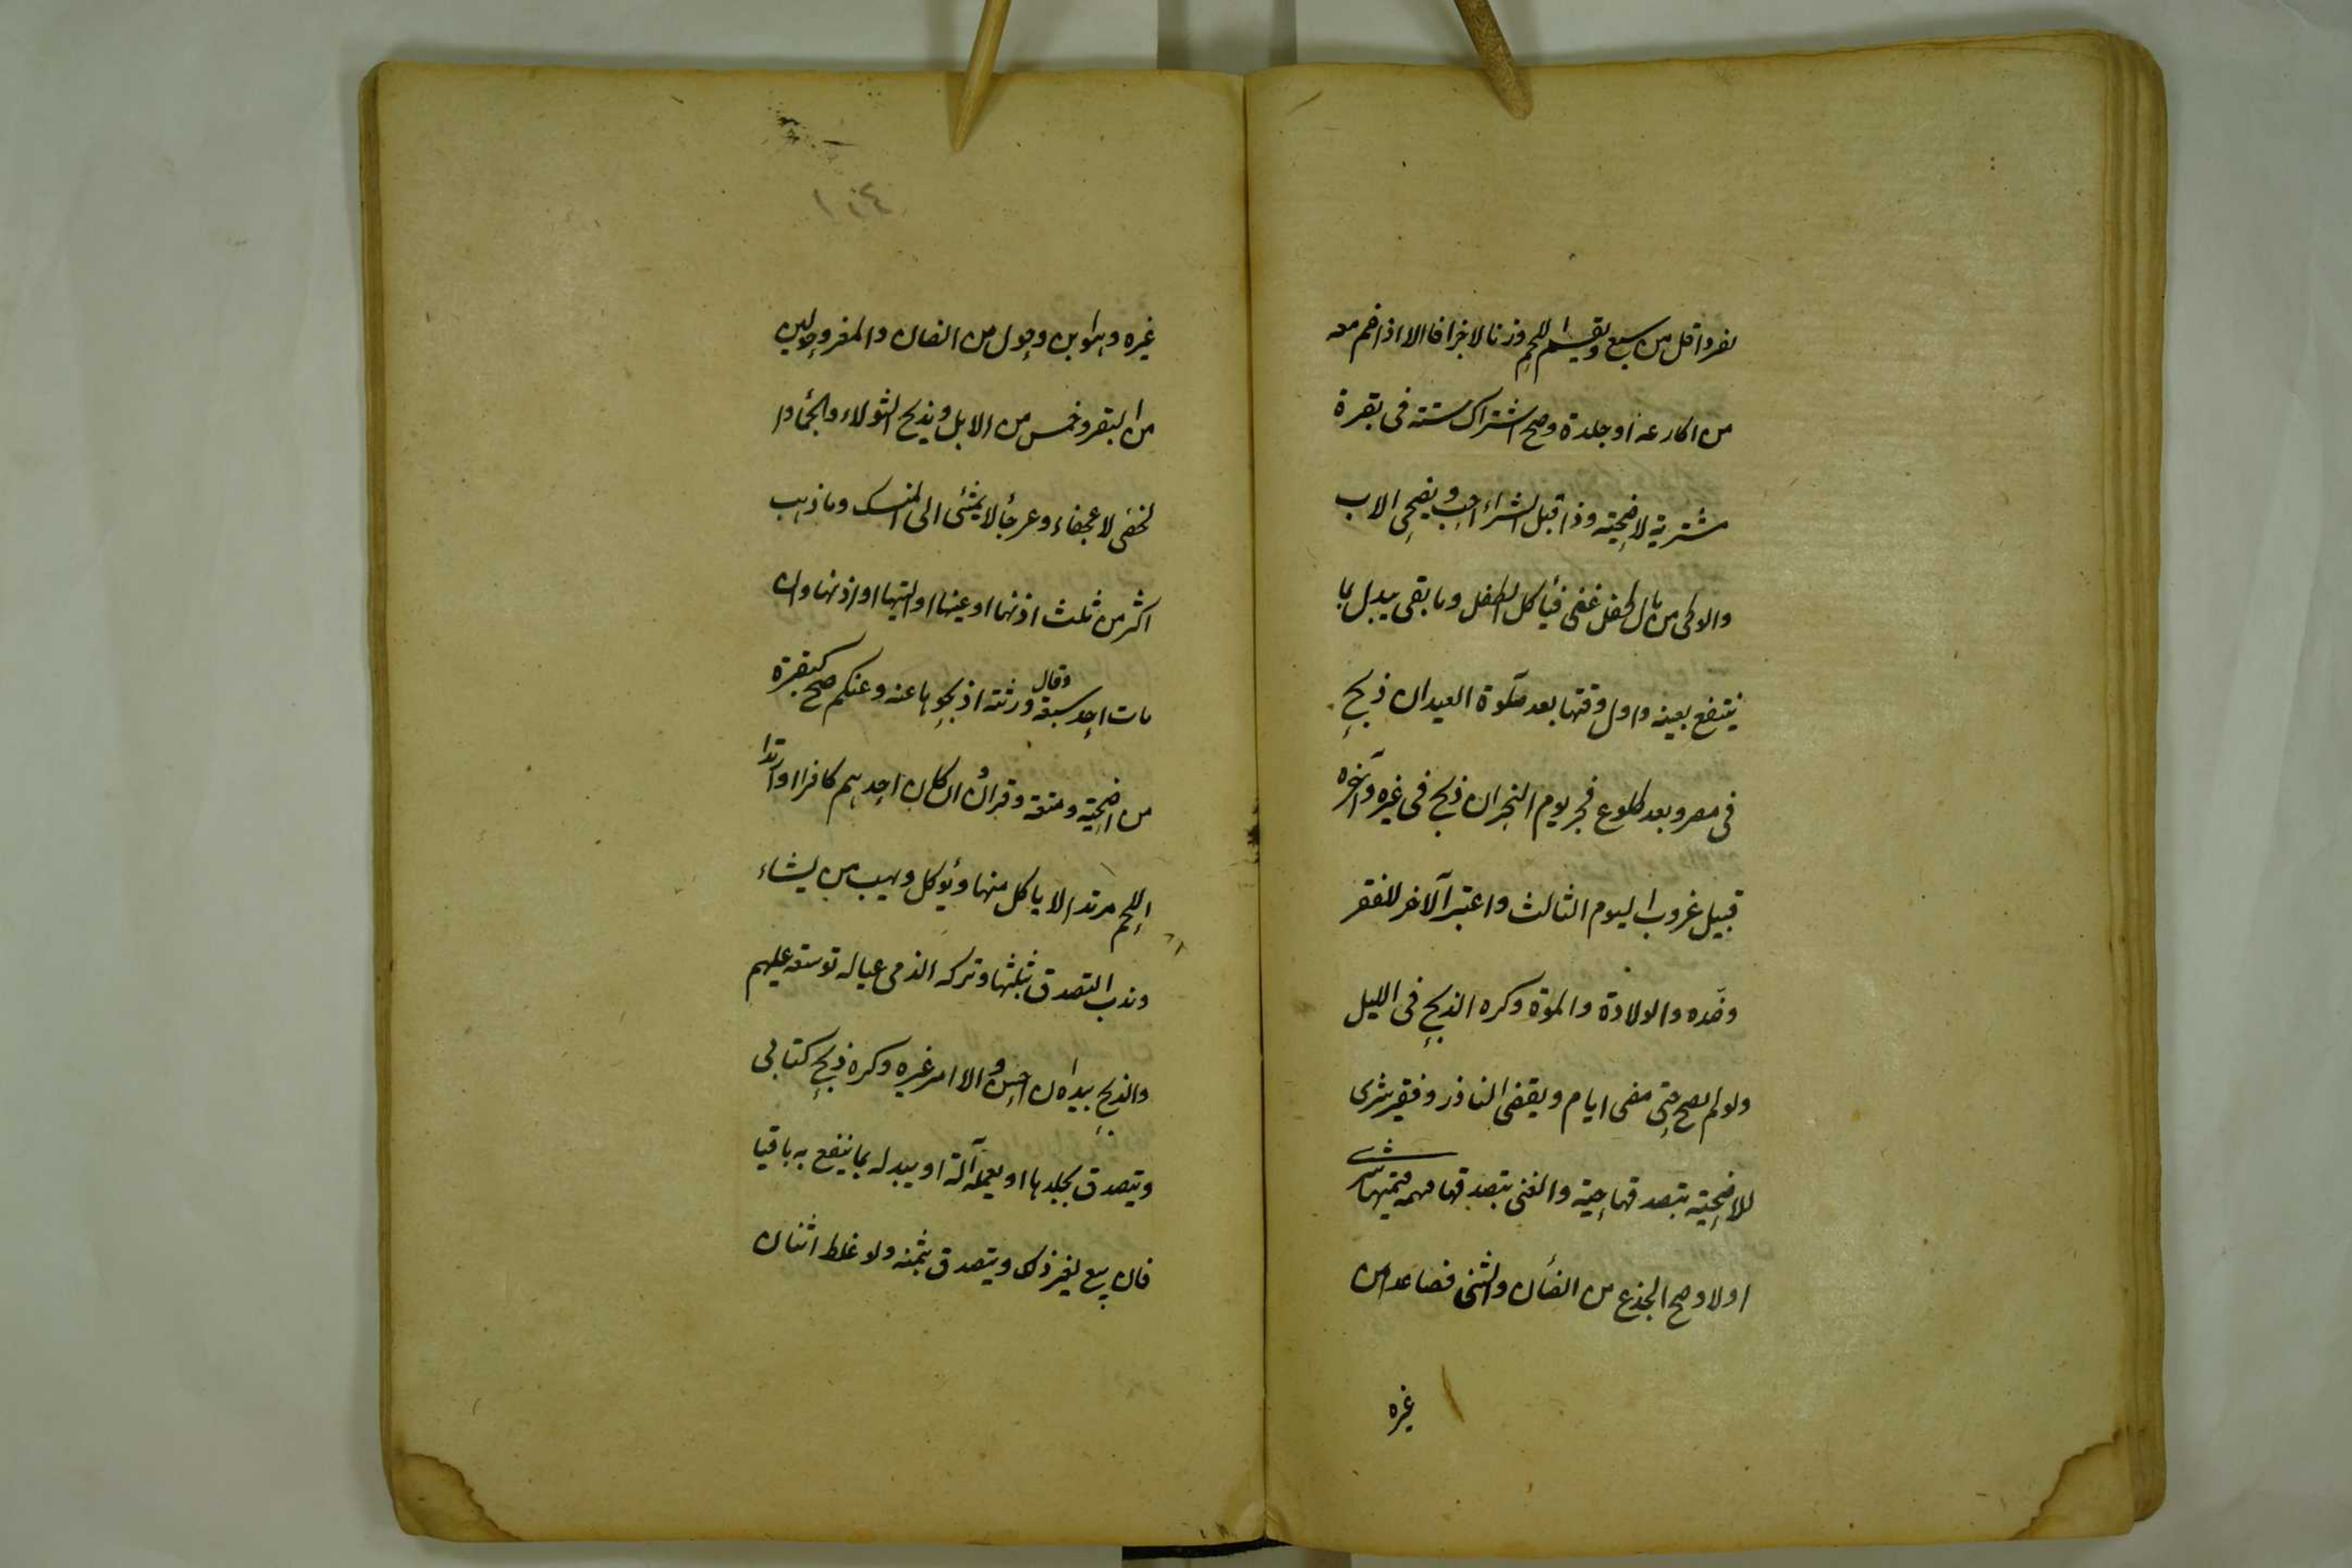 لفرد اقل من سبع ويقسم اللحم وزنا لا جزافا الا اذا ضم معه
من اكارعه او جلده وصح اشتراك ستة في بقرة
مشترية لاضحية وذا قبل الشراء احب ويضحى الاب
والوصى من مال طفل غنى فيأكل الطفل وما بقى يبدل بما
ينتفع بعينه واول وقتها بعد صلوة العيد ان ذبح
في مصر وبعد طلوع فجر يوم النحر ان ذبح في غيره وآخره
قبيل غروب اليوم الثالث واعتبر الآخر للفقر
وضده والولادة والموت وكره الذبح في الليل
ولو لم يضح حتى مضى ايام ويقضى الناذر وفقير شرى
للاضحية بتصدقها حية والغنى بتصدق قيمتها شرى
اولا وصح الجذع من الضأن والثنى فصاعدا من
غيره
١٠٤
غيره وهو ابن حول من الضان والمعز وحولين
من البقر وخمس من الابل ويذبح الثولاء والجماء وا
لخصى لا عجفاء وعرجاء لا يمشى الى المنسك وما ذهب
اكثر من ثلث اذنها او عينها او اليتها او ذنبها وان
مات احد سبعة وقال ورثته اذبحوها عنه وعنكم صح كبقرة
من اضحية ومتعة وقران وان كان احدهم كافرا او ارادا
اللحم مريدا لا ياكل منها ويؤكل ويهب من يشاء
وندب التصدق بثلثها وتركه لذى عياله توسعة عليهم
والذبح بيده ان احسن والا امر غيره وكره ذبح كتابى
ويتصدق بجلدها او يعمله آلة او يبدله بما ينتفع به باقيا
فان بيع لغير ذلك ويتصدق بثمنه ولو غلط اثنان